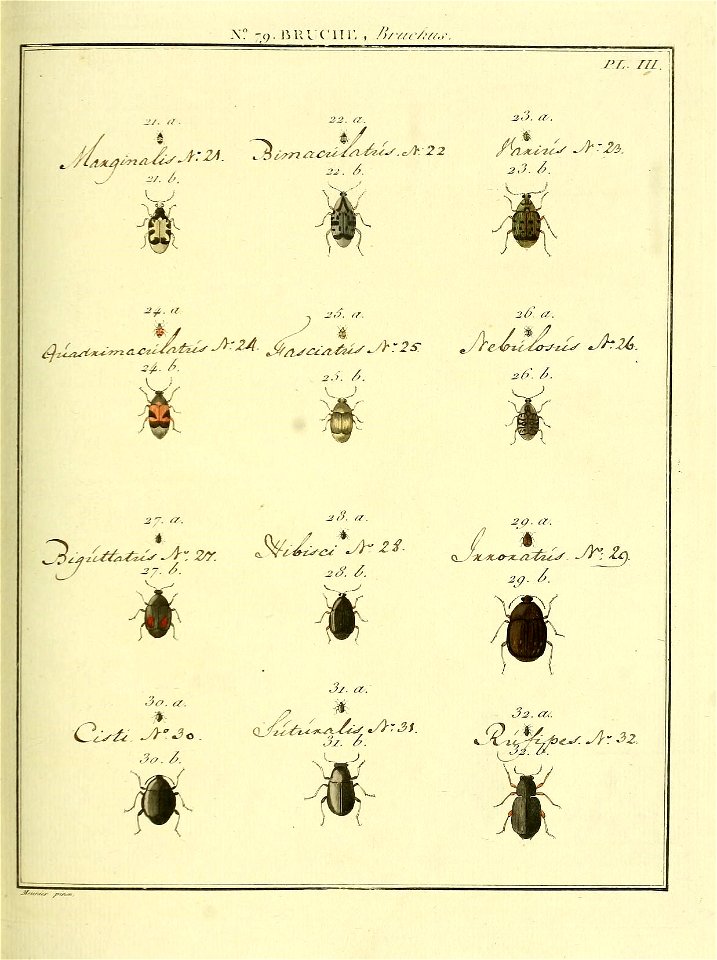 N.º 79. BRUCHE, Bruchus.
PL. III.
21. a. 22. a. 23. a.
Marginalis N.º 21. Bimaculatus. N. 22 Varius N.º 23.
21. b. 22. b. 23. b.
24. a 25. a. 26. a.
Quadrimaculatus N.º 24. Fasciatus N.º 25. Nebulosus N.º 26.
24. b. 25. b. 26. b.
27. a. 28. a. 29. a.
Biguttatus N.º 27. Hibisci N.º 28. Innonatus. N.º 29.
27. b. 28. b. 29. b.
31. a.
30. a. 32. a.
Cisti. N.º 30. Suturalis N.º 31. Rufipes. N.º 32.
30. b. 31. b. 32. b.
Meunier pinx.